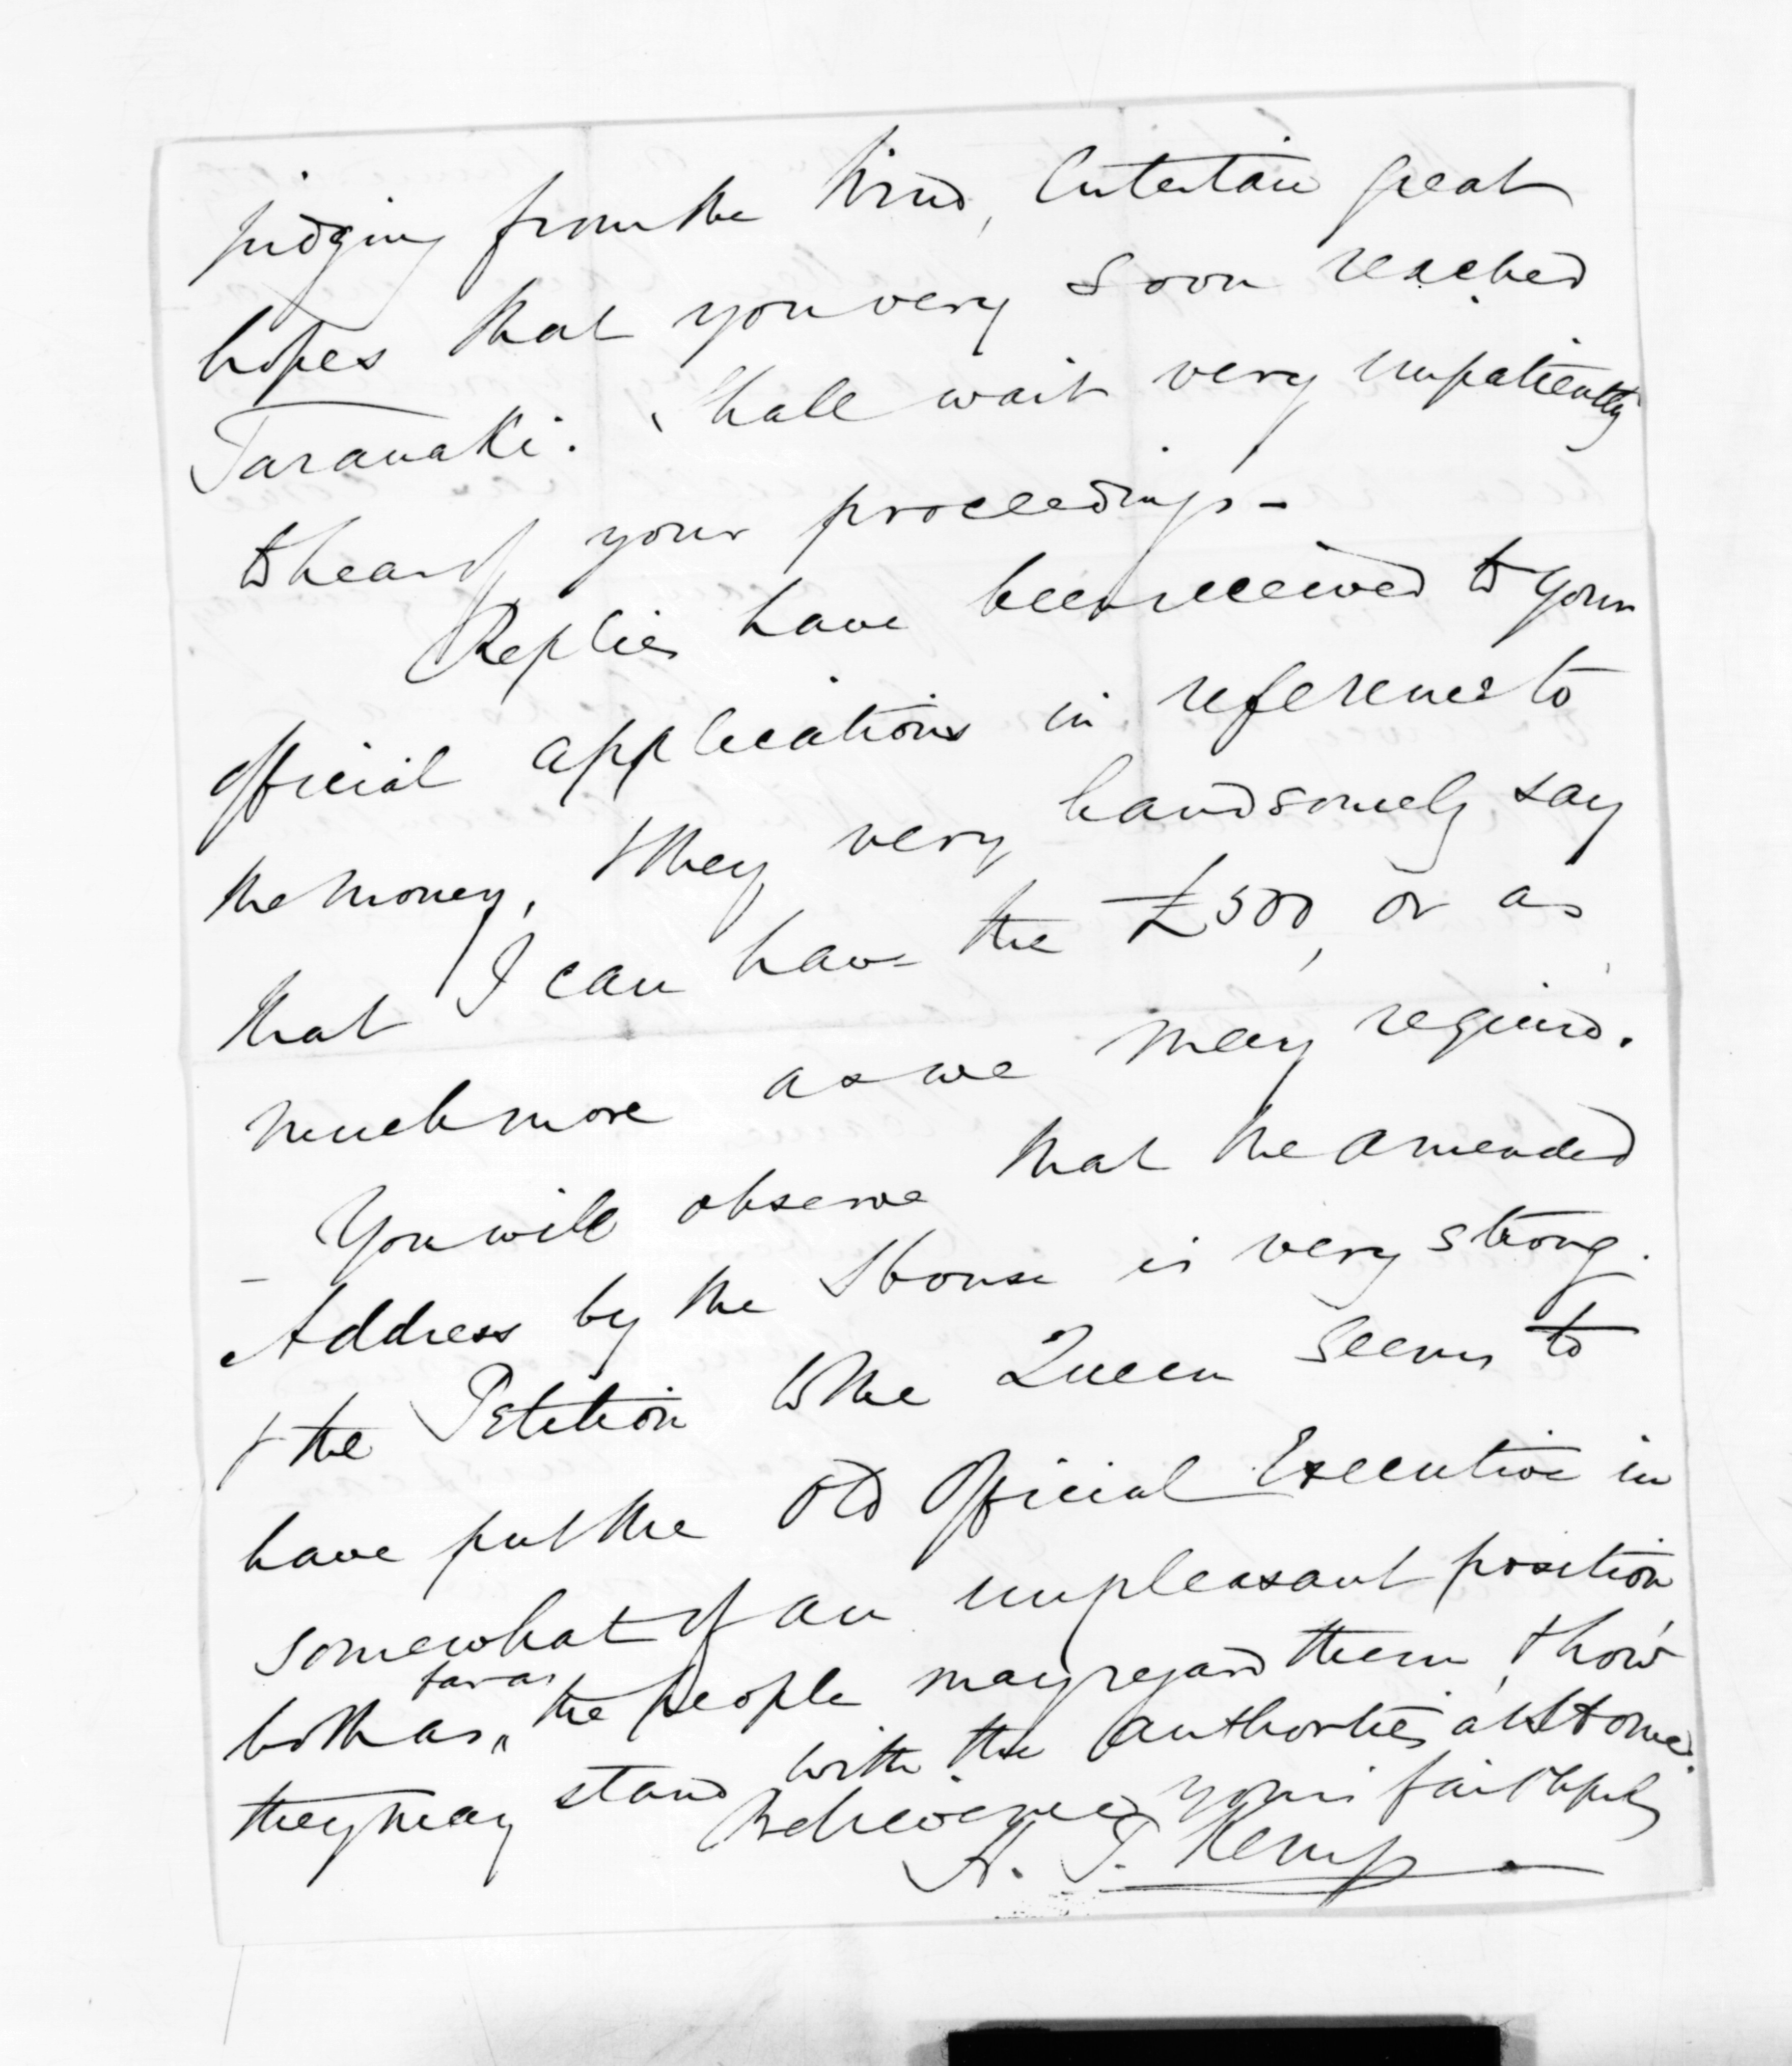 judging from the wind, entertain great
hopes that you very soon reached
Taranaki. Shall wait very impatiently
to hear of your proceedings -
Replies have been received to your
official applications in reference to
the money, & they very handsomely say
that I can have the £500, or as
much more as we may require.
- You will observe that the amended
Address by the House is very strong.
& the Petition to the Queen seems to
have put the old Official Executive in
somewhat of an unpleasant position
far as
both as " the people may regard them, & how
they may stand with the authorities at Home.
Believe me yours faithfully
H. T. Kemp